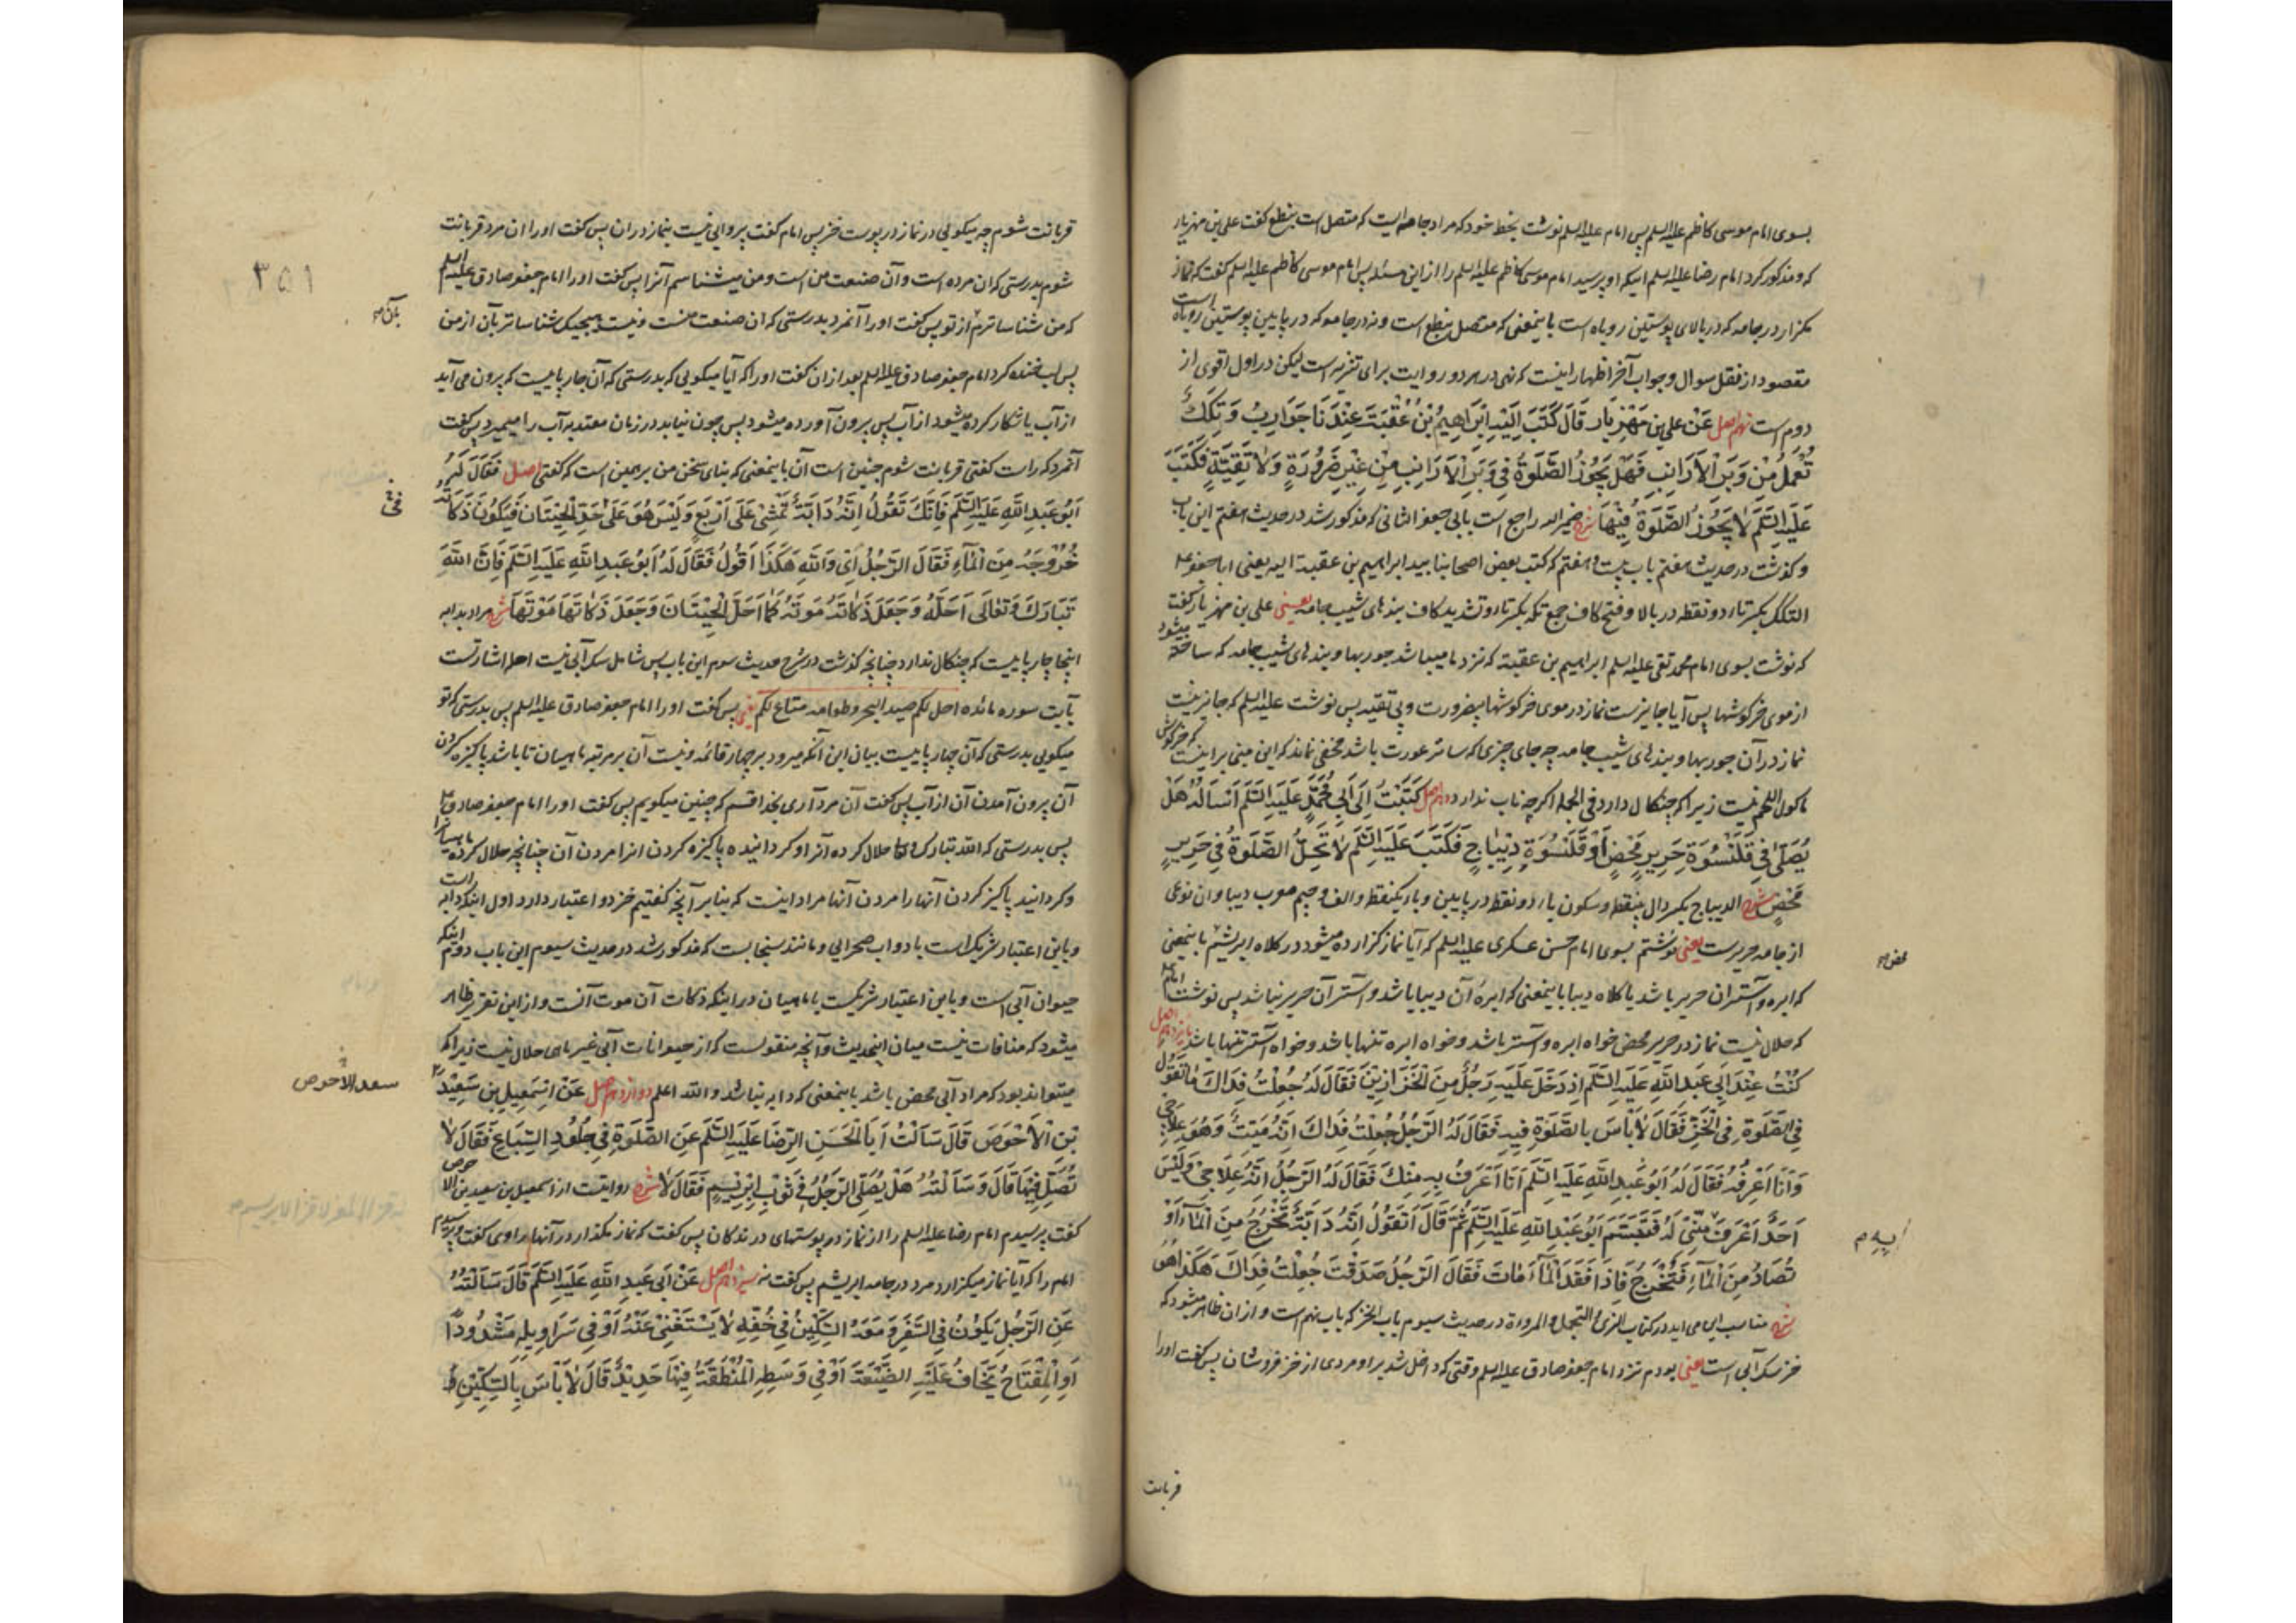 بسوی امام موسی کاظم علیه السلم پس امام علیه السلم نوشت بخط خود که مراد جامه ایست که متصل است بنطع گفت علی بن مهزیار
که و مذکور کرد امام رضا علیه السلم اینکه او پرسید امام موسی کاظم علیه السلم را از این مسئله پس امام موسی کاظم علیه السلم گفت که نماز
مگزار در جامه که در بالای پوستین روباه است باینمعنی که متصل بنطع است و نه در جامه که در پایین پوستین روباه است
مقصود از نقل سوال و جواب آخر اظهار اینست که نهی در هر دو روایت برای تنزیه است لیکن در اول اقوی از
دوم است نهم اصل عَنْ علی بن مَهْزِیَار قَالَ کَتَبَ اِلَیْهِ اِبْرَاهِیمُ بْنُ عُقْبَةَ عِنْدَنَا جَوَارِبُ وَ تِکَكٌ
تُعْمَلُ مِنْ وَبَرِ الْاَرَانِبِ فَهَلْ یَجُوزُ الصَّلَوةُ فِی وَبَرِ الْاَرَانِبِ مِنْ غَیْرِ ضَرُورَةٍ وَلَا تَقِیَّةٍ فَکَتَبَ
عَلَیْهِ السَّلَمُ لَا یَجُوزُ الصَّلَوةُ فِیْهَا شرح ضمیر الیه راجع است بابی جعفر الثانی که مذکور شد در حدیث هفتم این باب
و گذشت در حدیث هفتم باب بیست و هفتم که کتب بعض اصحابنا بید ابراهیم بن عقبة الیه یعنی ابا جعفر ع
التکك بکسر تاء دو نقطه در بالا و فتح کاف جمع تکه بکسر تا و تشدید کاف بندهای شیب جامه یعنی علی بن مهزیار گفت
که نوشت بسوی امام محمد تقی علیه السلم ابراهیم بن عقبة که نزد ما میباشد جوربها و بندهای شیب جامه که ساخته میشود
از موی خرگوشها پس آیا جایزست نماز در موی خرگوشها بیضرورت و بی تقیه پس نوشت علیه السلم که جایز نیست
نماز در آن جوربها و بندهای شیب جامه چه جای چیزی که ساتر عورت باشد مخفی نماند که این مبنی بر اینست که خرگوش
ماکول اللحم نیست زیرا که چنگال دارد فی الجمله اگرچه ناب ندارد دهم اصل کَتَبْتُ اِلَی اَبِی مُحَمَّدٍ عَلَیْهِ السَّلَمُ اَسْاَلُهُ هَلْ
یُصَلّٰی فِی قَلَنْسُوَةِ حَرِیرٍ مَحْضٍ اَوْ قَلَنْسُوَةِ دِیْبَاجٍ فَکَتَبَ عَلَیْهِ السَّلَمُ لَا تَحِلُّ الصَّلَوةُ فِی حَرِیرٍ
مَحْضٍ شرح الدیباج بکسر دال بینقطه و سکون یاء دو نقطه در پایین و باء یکنقطه و الف و جیم معرب دیبا و آن نوعی
از جامه حریرست یعنی نوشتم بسوی امام حسن عسکری علیه السلم که آیا نماز گزارده میشود در کلاه ابریشم باینمعنی
محض
که ابره و آستر آن حریر باشد یا کلاه دیبا باینمعنی که ابره آن دیبا باشد و آستر آن حریر نباشد پس نوشت امام ع
که حلال نیست نماز در حریر محض خواه ابره و آستر باشد و خواه ابره تنها باشد و خواه آستر تنها باشد یازدهم اصل
کُنْتُ عِنْدَ اَبِی عَبْدِ اللهِ عَلَیْهِ السَّلَمُ اِذْ دَخَلَ عَلَیْهِ رَجُلٌ مِنَ الْخَزَّازِینَ فَقَالَ لَهُ جُعِلْتُ فِدَاكَ مَا تَقُولُ
فِی الصَّلَوةِ فِی الْخَزِّ فَقَالَ لَا بَأْسَ بِالصَّلَوةِ فِیهِ فَقَالَ لَهُ الرَّجُلُ جُعِلْتُ فِدَاكَ اِنَّهُ مَیِّتٌ وَهُوَ عِلَاجِی
وَاَنَا اَعْرِفُهُ فَقَالَ لَهُ اَبُو عَبْدِ اللهِ عَلَیْهِ السَّلَمُ اَنَا اَعْرَفُ بِهِ مِنْكَ فَقَالَ لَهُ الرَّجُلُ اِنَّهُ عِلَاجِی وَلَیْسَ
اَحَدٌ اَعْرَفَ مِنِّی لَهُ فَتَبَسَّمَ اَبُو عَبْدِ اللهِ عَلَیْهِ السَّلَمُ ثُمَّ قَالَ اَتَقُولُ اِنَّهُ دَابَّةٌ تَخْرُجُ مِنَ الْمَآءِ اَوْ
تُصَادُ مِنَ الْمَآءِ فَتُخْرَجُ فَاِذَا فَقَدَ الْمَآءَ مَاتَ فَقَالَ الرَّجُلُ صَدَقْتَ جُعِلْتُ فِدَاكَ هَکَذَا هُوَ
شرح مناسب این می آید در کتاب الزی و التجمل و المروءة در حدیث سیوم باب الخز که باب نهم است و از آن ظاهر میشود که
خز سگ آبی است یعنی بودم نزد امام جعفر صادق علیه السلم وقتی که داخل شد بر او مردی از خز فروشان پس گفت او را
قربانت
٣٥١
قربانت شوم چه میگویی در نماز در پوست خز پس امام گفت پروایی نیست بنماز در آن پس گفت او را آن مرد قربانت
شوم بدرستی که آن مرده است و آن صنعت من است و من میشناسم آنرا پس گفت او را امام جعفر صادق علیه السلم
که من شناساترم از تو پس گفت او را آنمرد بدرستی که آن صنعت منست و نیست هیچیک شناساتر بآن از من
بآن
پس لب خنده کرد امام جعفر صادق علیه السلم بعد از آن گفت او را که آیا میگویی که بدرستی که آن چارپاییست که بیرون می آید
از آب یا شکار کرده میشود از آب پس بیرون آورده میشود پس چون نیابد در زمان معتد به آب را میمیرد پس گفت
آنمرد که راست گفتی قربانت شوم چنین است آن باینمعنی که بنای سخن من بر همین است که گفتی اصل فَقَالَ لَهُ
اَبُو عَبْدِ اللهِ عَلَیْهِ السَّلَمُ فَاِنَّكَ تَقُولُ اِنَّهُ دَابَّةٌ تَمْشِی عَلَی اَرْبَعٍ وَلَیْسَ هُوَ عَلَی حَدِّ الْحِیْتَانِ فَیَکُونَ ذَکَاتُهُ
خُرُوجَهُ مِنَ الْمَآءِ فَقَالَ الرَّجُلُ اِی وَاللهِ هَکَذَا اَقُولُ فَقَالَ لَهُ اَبُو عَبْدِ اللهِ عَلَیْهِ السَّلَمُ فَاِنَّ اللهَ
تَبَارَكَ وَتَعَالَی اَحَلَّهُ وَجَعَلَ ذَکَاتَهُ مَوْتَهُ کَمَا اَحَلَّ الْحِیْتَانَ وَجَعَلَ ذَکَاتَهَا مَوْتَهَا شرح مراد بدابه
اینجا چارپاییست که چنگال ندارد چنانچه گذشت در شرح حدیث سوم این باب پس شامل سگ آبی نیست احله اشارتست
بآیت سوره مائده احل لکم صید البحر و طعامه متاع لکم یعنی پس گفت او را امام جعفر صادق علیه السلم پس بدرستی که تو
میگویی بدرستی که آن چهارپاییست بیان این آنکه میرود بر چهار قائمه و نیست آن بر مرتبه ماهیان تا باشد پاکیزه کردن
آن بیرون آمدن آن از آب پس گفت آن مرد آری بخدا قسم که چنین میگویم پس گفت او را امام جعفر صادق ع
پس بدرستی که الله تبارك و تعالی حلال کرده آنرا و گردانیده پاکیزه کردن آنرا مردن آن چنانچه حلال کرده ماهیان را
و گردانید پاکیزه کردن آنها را مردن آنها مراد اینست که بنابر آنچه گفتیم خز دو اعتبار دارد اول اینکه دابه است
و باین اعتبار شریکست با دواب صحرایی و مانند سنجابست که مذکور شد در حدیث سیوم این باب دوم اینکه
حیوان آبی است و باین اعتبار شریکست با ماهیان در اینکه ذکات آن موت آنست و از این تقریر ظاهر
میشود که منافات نیست میان اینحدیث و آنچه منقولست که از حیوانات آبی غیر ماهی حلال نیست زیرا که
میتواند بود که مراد آبی محض باشد باینمعنی که دابه نباشد و الله اعلم دوازدهم اصل عَنْ اِسْمَعِیلَ بْنِ سَعِیْدِ
سعد الاحوص
بْنِ الْاَحْوَصِ قَالَ سَاَلْتُ اَبَا الْحَسَنِ الرِّضَا عَلَیْهِ السَّلَمُ عَنِ الصَّلَوةِ فِی جُلُودِ السِّبَاعِ فَقَالَ لَا
تُصَلِّ فِیْهَا قَالَ وَسَاَلْتُهُ هَلْ یُصَلِّی الرَّجُلُ فِی ثَوْبِ اِبْرِیْسِمٍ فَقَالَ لَا شرح روایتست از اسمعیل بن سعید بن الاحوص
گفت پرسیدم امام رضا علیه السلم را از نماز در پوستهای درندگان پس گفت که نماز مگذار در آنها راوی گفت و پرسیدم
امام را که آیا نماز میگزارد مرد در جامه ابریشم پس گفت نه سیزدهم اصل عَنْ اَبِی عَبْدِ اللهِ عَلَیْهِ السَّلَمُ قَالَ سَاَلْتُهُ
عَنِ الرَّجُلِ یَکُونُ فِی السَّفَرِ وَمَعَهُ السِّکِّیْنُ فِی خُفِّهِ لَا یَسْتَغْنِی عَنْهُ اَوْ فِی سَرَاوِیلِهِ مَشْدُودًا
اَوِ الْمِفْتَاحُ یَخَافُ عَلَیْهِ الضَّیْعَةَ اَوْ فِی وَسَطِهِ الْمِنْطَقَةُ فِیْهَا حَدِیْدٌ قَالَ لَا بَأْسَ بِالسِّکِّیْنِ